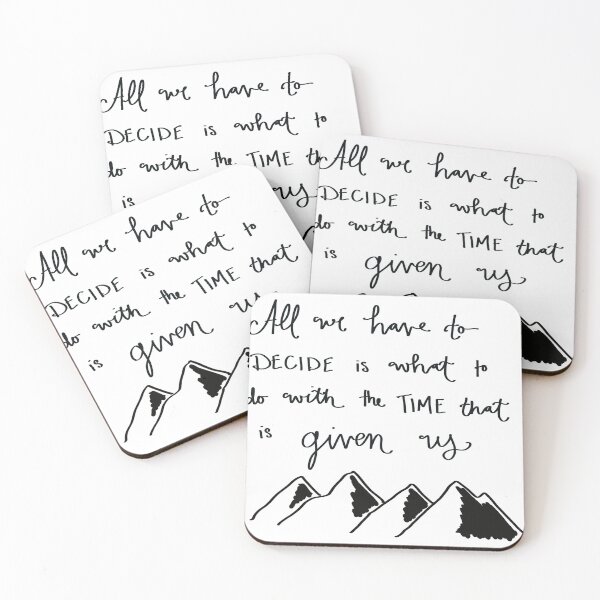 All we have to
DECIDE is what to
do with the TIME
is us
All we have to
DECIDE is what to
do with the TIME that
is given us
All we have to
DECIDE is what to
do with the TIME that
is given us
All we have to
DECIDE is what to
do with the TIME that
is given us